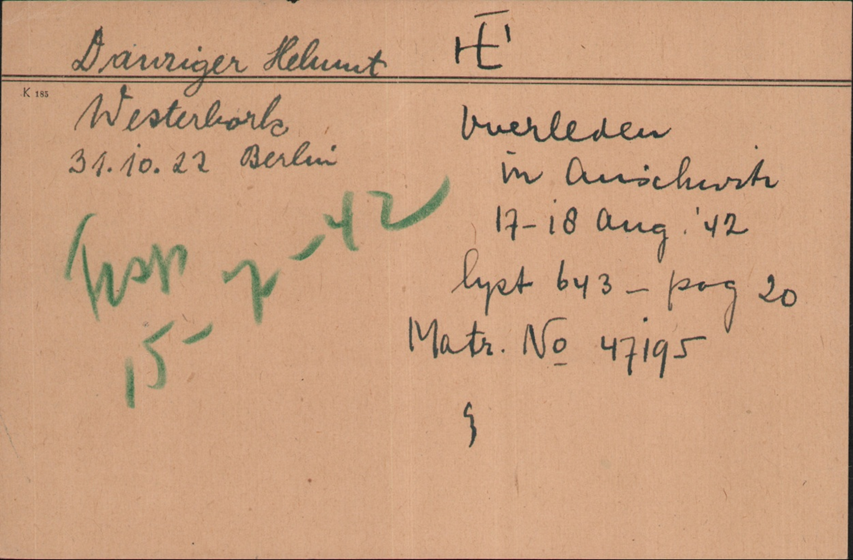 Danziger Helmut
K 185
Westerbork
31.10.22 Berlin
overleden
in Auschwitz
17-18 Aug. '42
lyst 643 - pag 20
Matr. No 47195
Trsp
15-7-42